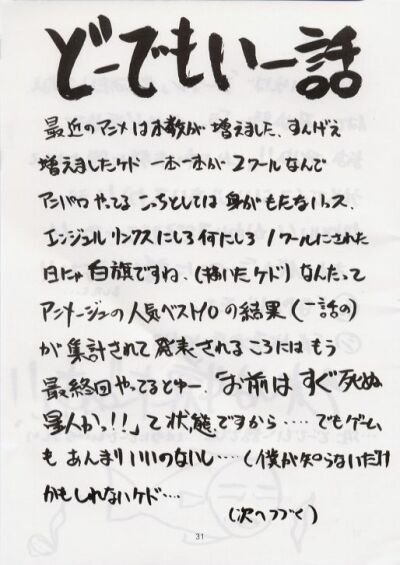 どーでもいー話
最近のアニメは本数が増えました、すんげえ
増えましたケド 一本一本が2クールなんで
アンパロやってる こっちとしては身がもたないっス、
エンジェルリンクスにしろ何にしろ1クールにされた
日にゃ白旗ですね、(描いたケド)なんたって
アニメージュの人気ベスト10の結果(一話の)
が集計されて発表されるころにはもう
最終回やってるときー、「お前はすぐ死ぬ
星人かっ!!」て状態ですから‥‥でもゲーム
もあんまりいいのないし‥‥(僕が知らないだけ
かもしれないケド‥‥
(次へつづく)
31